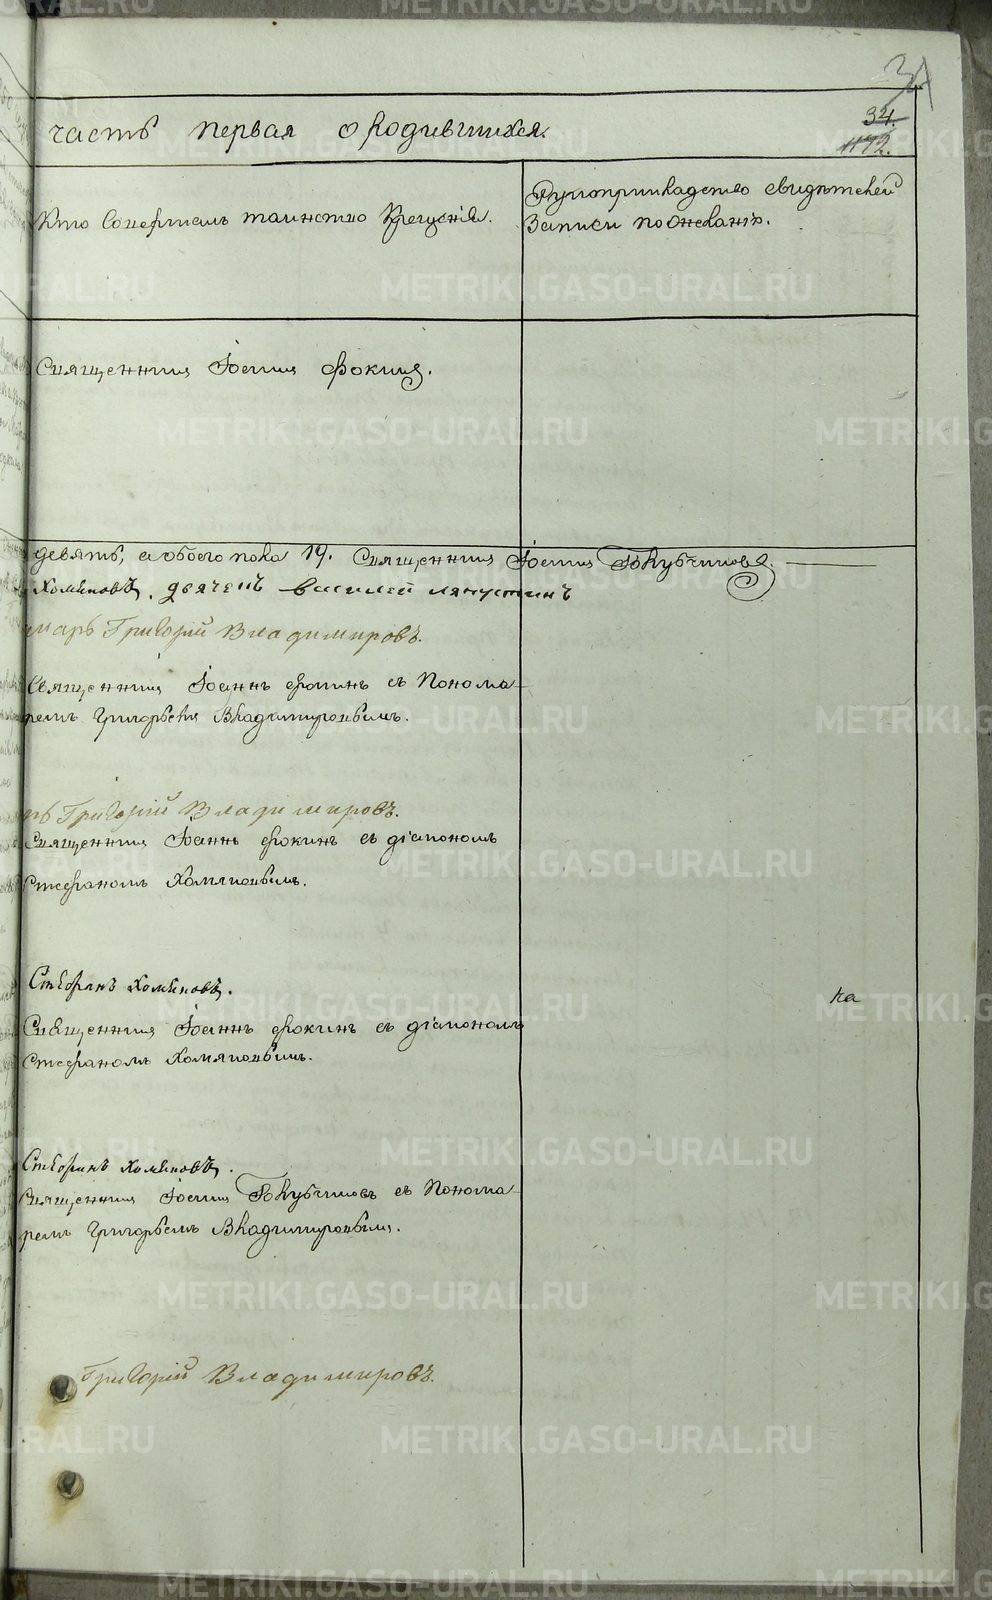 31
часть первая о родившихся.
34.
1172.
Кто совершалъ таинство крещенія.
Рукоприкладство свидѣтелей
записи по желанію.
Священник Іоанн Фокин.
девять, а обоего пола 19. Священник Іоанн Голубчиковъ.
Хомяковъ. дьячекъ Василей Ляпустинъ
марь Григорій Владимировъ.
Священник Іоаннъ Фокинъ съ Понома-
ремъ Григорьем Владимировымъ.
ь Григорій Владимировъ.
Священник Іоаннъ Фокинъ съ діакономъ
Стефаномъ Хомяковымъ.
Стефанъ Хомяковъ.
на
Священник Іоаннъ Фокинъ съ діакономъ
Стефаномъ Хомяковымъ.
Стефанъ Хомяковъ.
Священник Іоанн Голубчиковъ съ Понома-
ремъ Григорьемъ Владимировым.
Григорій Владимировъ.
METRIKI.GASO-URAL.RU